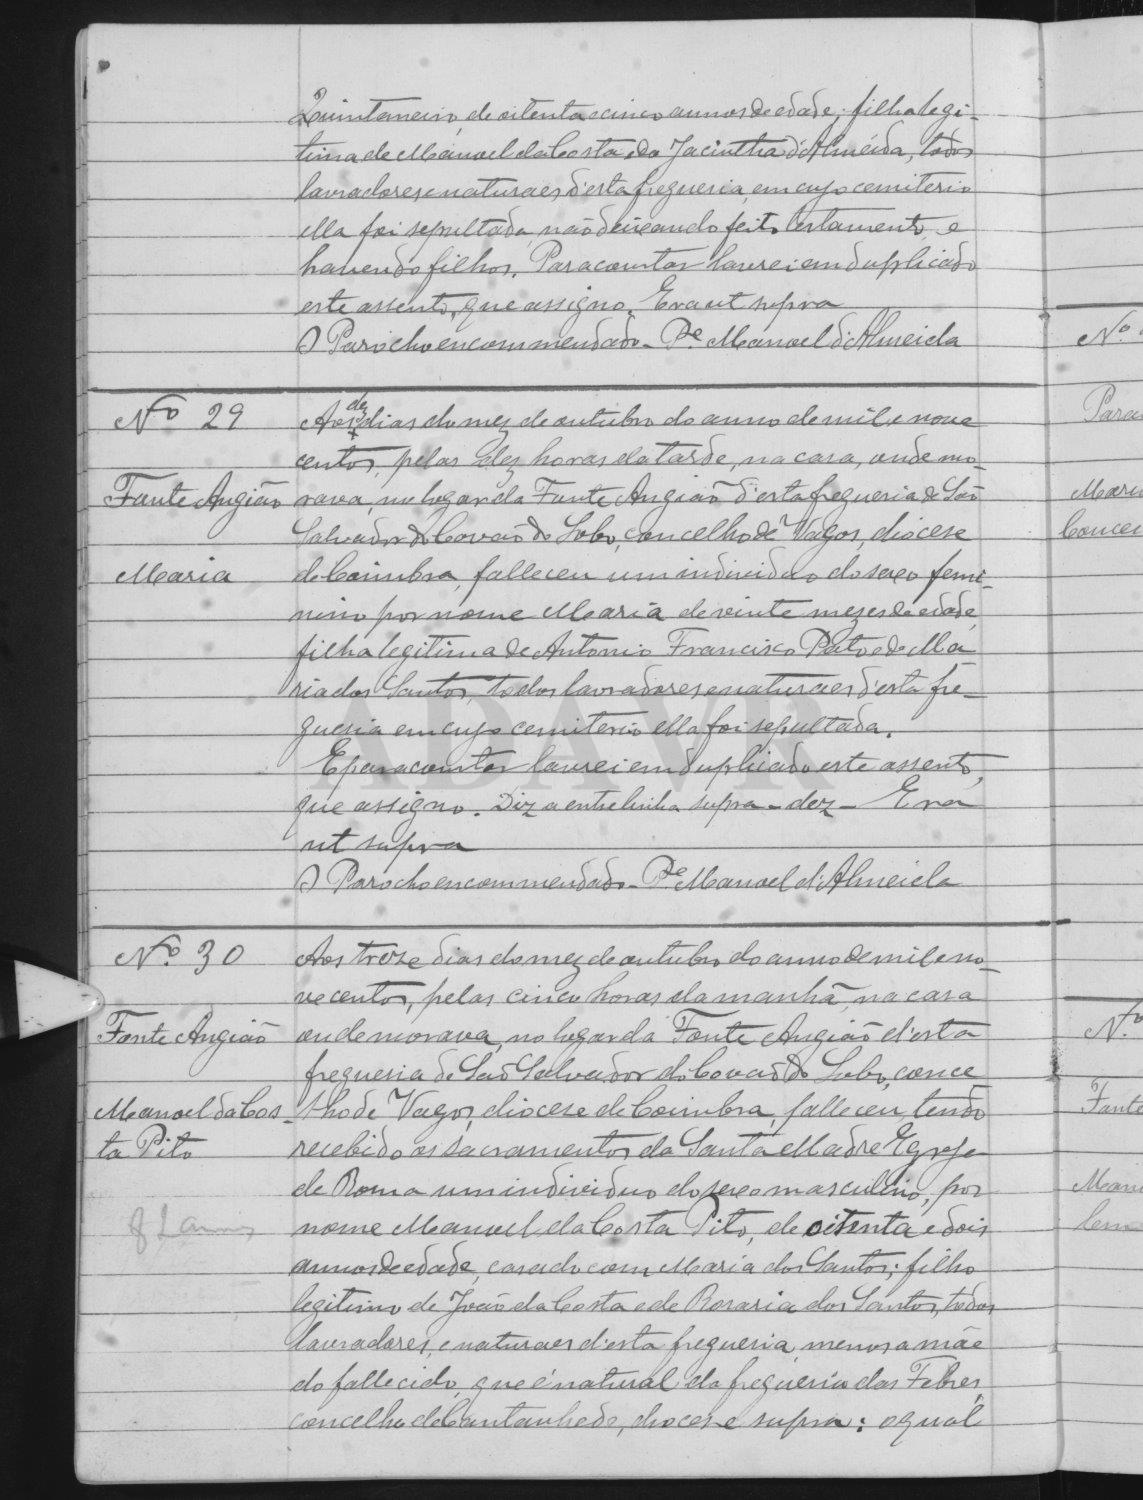 Quintaneiro, de oitenta e cinco annos de edade, filha legi-
tima de Manuel da Costa e da Jacintha d'Almeida, todos
lavradores e naturaes d'esta freguesia, em cujo cemiterio
ella foi sepultada, não deixando feito testamento, e
havendo filhos. Para constar lavrei em duplicado
este assento, que assigno. Era ut supra
O Parocho encommendado - Pe. Manoel d'Almeida
Nº 29
Aos dez dias do mez de outubro do anno de mil e nove
centos, pelas dez horas da tarde, na casa, onde mo-
Fonte Angião
rava, no logar da Fonte Angião d'esta freguesia de São
Salvador do Covão do Lobo, concelho de Vagos, diocese
Maria
de Coimbra, falleceu um individuo do sexo femi-
nino por nome Maria de vinte mezes de edade,
filha legitima de Antonio Francisco Pato e de Ma-
ria dos Santos, todos lavradores e naturaes d'esta fre-
guesia em cujo cemiterio ella foi sepultada.
E para constar lavrei em duplicado este assento,
que assigno. Diz a entrelinha supra - dez - Era
ut supra
O Parocho encommendado - Pe. Manoel d'Almeida
Nº. 30
Aos treze dias do mez de outubro do anno de mil e no-
vecentos, pelas cinco horas da manhã, na casa
Fonte Angião
onde morava, no logar da Fonte Angião d'esta
freguesia de São Salvador do Covão do Lobo, conce
Manoel da Cos-
lho de Vagos, diocese de Coimbra, falleceu, tendo
ta Pito
recebido os sacramentos da Santa Madre Egreja
de Roma um individuo do sexo masculino, por
nome Manuel da Costa Pito, de oitenta e dois
annos de edade, casado com Maria dos Santos; filho
legitimo de João da Costa e de Rosaria dos Santos, todos
lavradores, e naturaes d'esta freguesia, menos a mãe
do fallecido, que é natural da freguesia das Febres,
concelho de Cantanhede, diocese supra; o qual
Nº.
Para
Maria
Concei
Nº.
Fonte
ADAVR